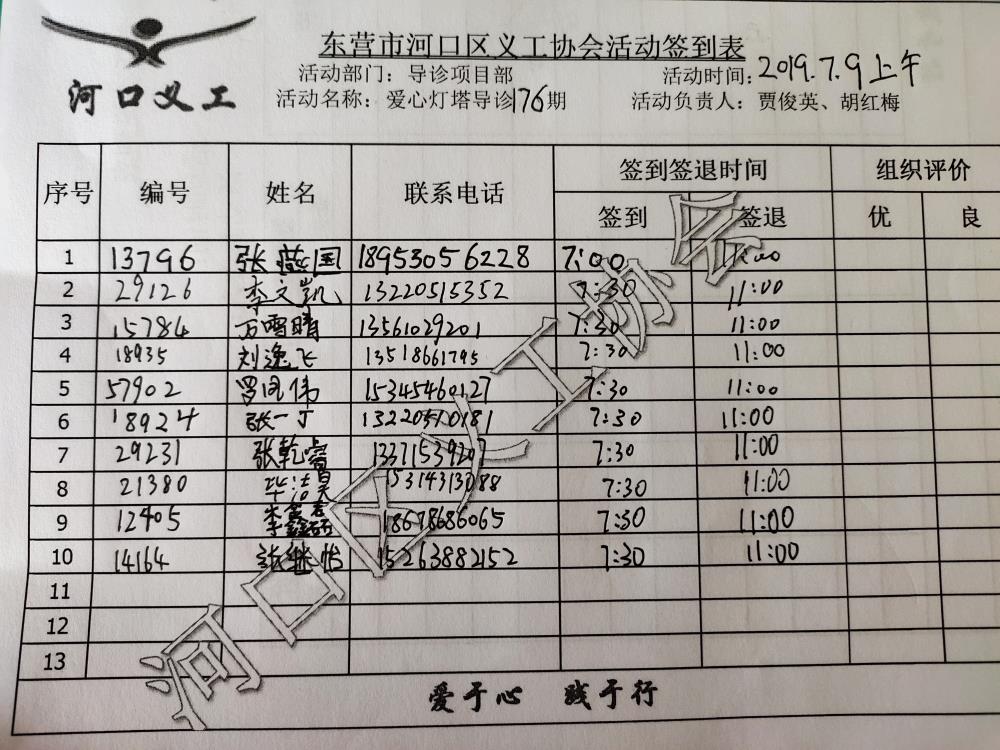 东营市河口区义工协会活动签到表
河口义工
活动部门：导诊项目部 活动时间：2019.7.9上午
活动名称：爱心灯塔导诊176期 活动负责人：贾俊英、胡红梅
序号 编号 姓名 联系电话 签到签退时间 组织评价
签到 签退 优 良
1 13796 张燕国 18953056228 7:00 11:00
2 29126 李文凯 13220515352 7:30 11:00
3 15784 万雪晴 13561029201 7:30 11:00
4 18935 刘逸飞 13518661795 7:30 11:00
5 57902 罗凤伟 15345460127 7:30 11:00
6 18924 张一丁 13220510181 7:30 11:00
7 29231 张乾睿 7:30 11:00
8 21380 毕浩昊 15314313088 7:30 11:00
9 12405 18678686065 7:30 11:00
10 14164 张继怡 15263882152 7:30 11:00
11
12
13
爱于心 践于行
河口区义工协会